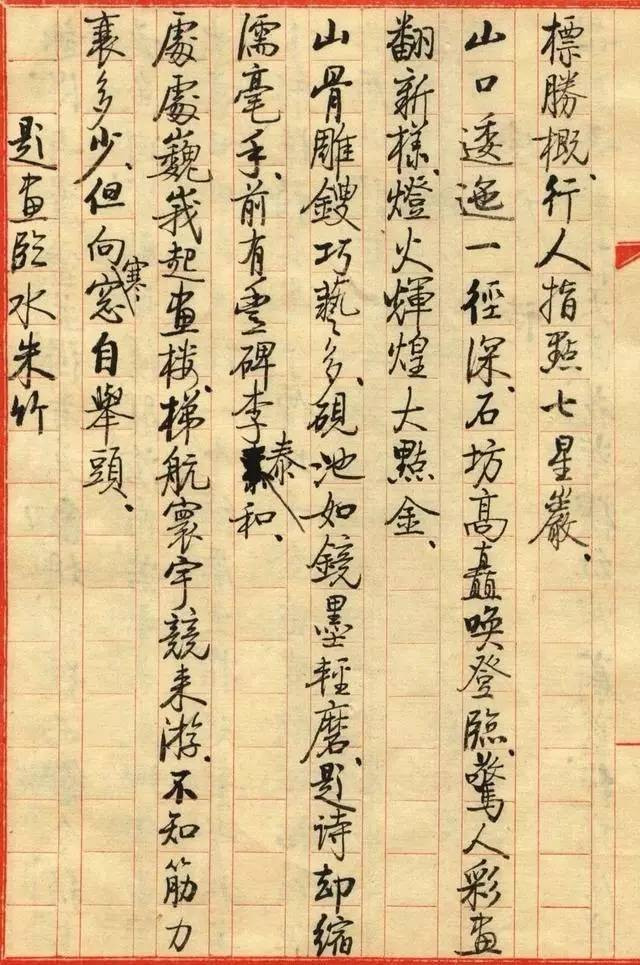 標勝概、行人指點七星巖、
山口逶迤一徑深、石坊高矗唤登臨、驚人彩画
翻新樣、燈火輝煌大點金、
山骨雕鎪巧藝多、硯池如鏡墨輕磨、題诗却缩
濡毫手、前有豐碑李泰和、
處處巍峩起画楼、梯航寰宇競来游、不知筋力
衰多少、但向寒窓自舉頭、
題画臨水朱竹